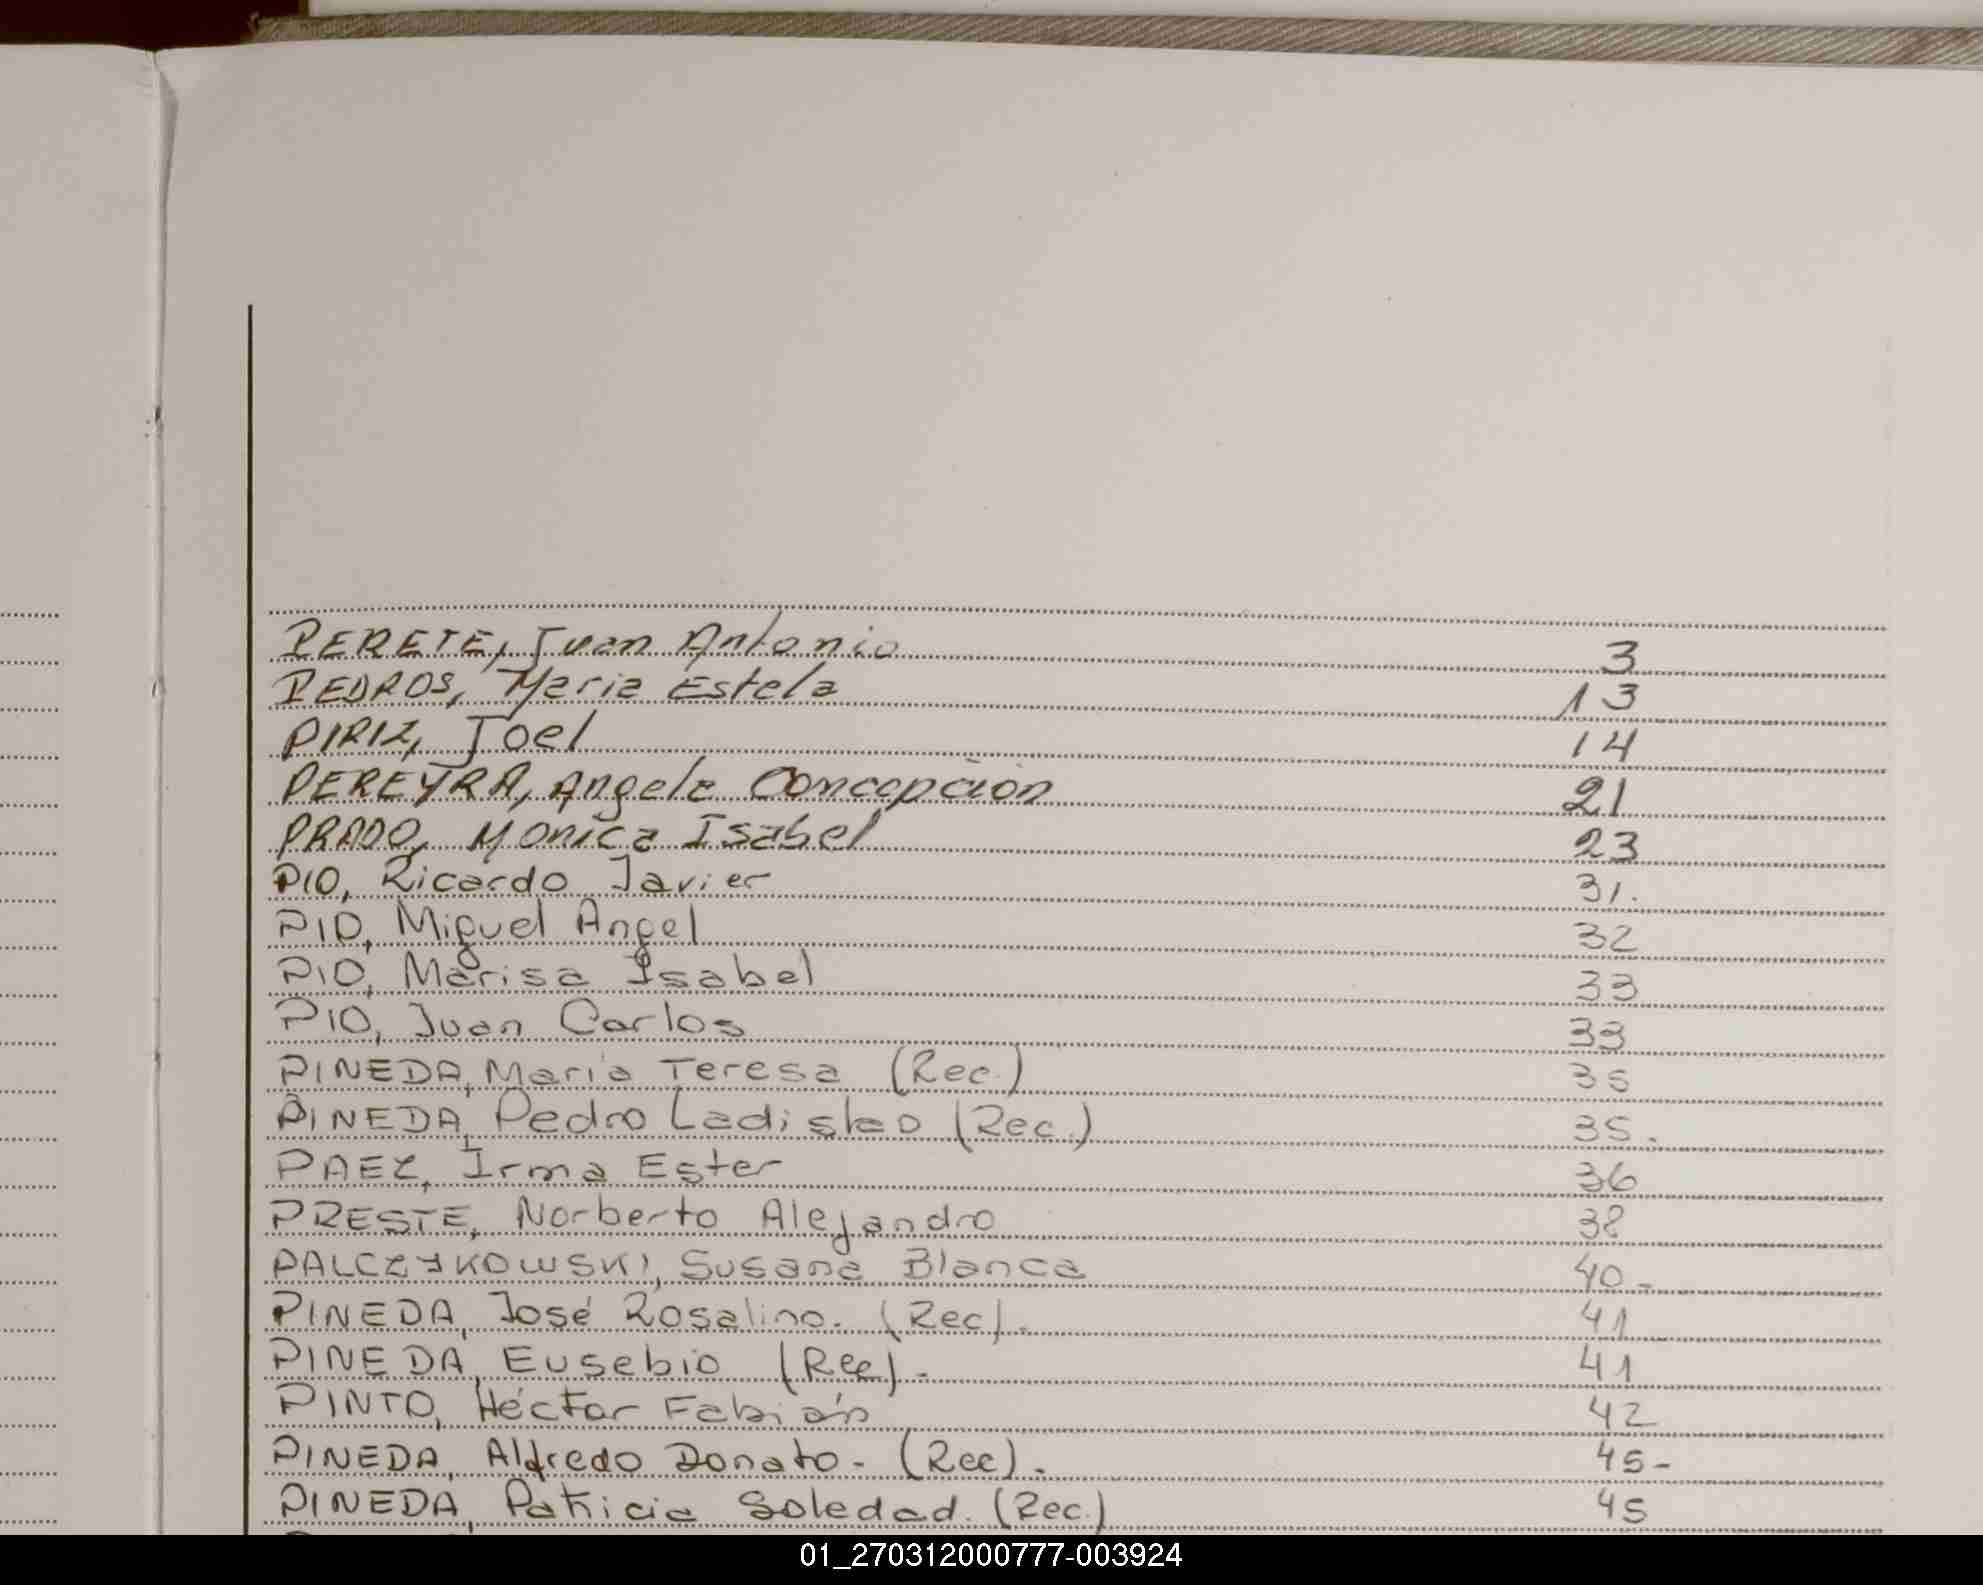 PERETE, Juan Antonio 3
PEDROS, Maria Estela 13
PIRIZ, Joel 14
PEREYRA, Angela Concepción 21
PRADO, Monica Isabel 23
PIO, Ricardo Javier 31.
PIO, Miguel Angel 32
PIO, Marisa Isabel 33
PIO, Juan Carlos 33
PINEDA, Maria Teresa (Rec.) 35
PINEDA, Pedro Ladislao (Rec.) 35.
PAEZ, Irma Ester 36
PRESTE, Norberto Alejandro 38
PALCZYKOWSKI, Susana Blanca 40-
PINEDA, José Rosalino. (Rec). 41
PINEDA, Eusebio (Rec).- 41
PINTO, Héctor Fabián 42
PINEDA, Alfredo Donato- (Rec). 45-
PINEDA, Patricia Soledad. (Rec.) 45
01_270312000777-003924